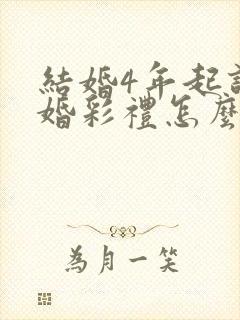 結婚4年起
婚彩禮怎麼
為月一笑